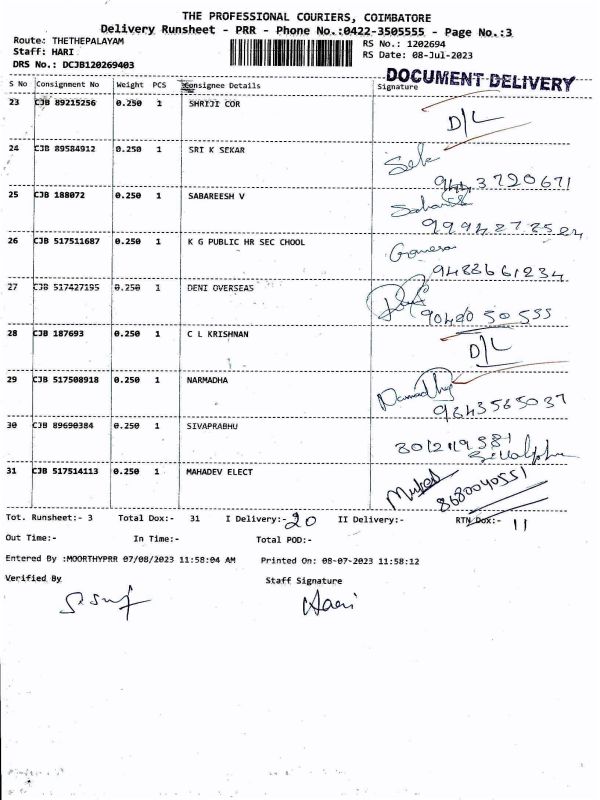 THE PROFESSIONAL COURIERS, COIMBATORE
Delivery Runsheet - PRR - Phone No.:0422-3505555 - Page No.:3
Route: THETHEPALAYAM RS No.: 1202694
Staff: HARI RS Date: 08-Jul-2023
DRS No.: DCJB120269403
DOCUMENT DELIVERY
S No Consignment No Weight PCS Consignee Details Signature
23 CJB 89215256 0.250 1 SHRIJI COR D/L
24 CJB 89584912 0.250 1 SRI K SEKAR
25 CJB 188072 0.250 1 SABAREESH V
26 CJB 517511687 0.250 1 K G PUBLIC HR SEC CHOOL
27 CJB 517427195 0.250 1 DENI OVERSEAS
28 CJB 187693 0.250 1 C L KRISHNAN D/L
29 CJB 517508918 0.250 1 NARMADHA
30 CJB 89690384 0.250 1 SIVAPRABHU
31 CJB 517514113 0.250 1 MAHADEV ELECT 8680040551
Tot. Runsheet:- 3 Total Dox:- 31 I Delivery:- 20 II Delivery:- RTN Dox:- 11
Out Time:- In Time:- Total POD:-
Entered By :MOORTHYPRR 07/08/2023 11:58:04 AM Printed On: 08-07-2023 11:58:12
Verified By Staff Signature
Hari